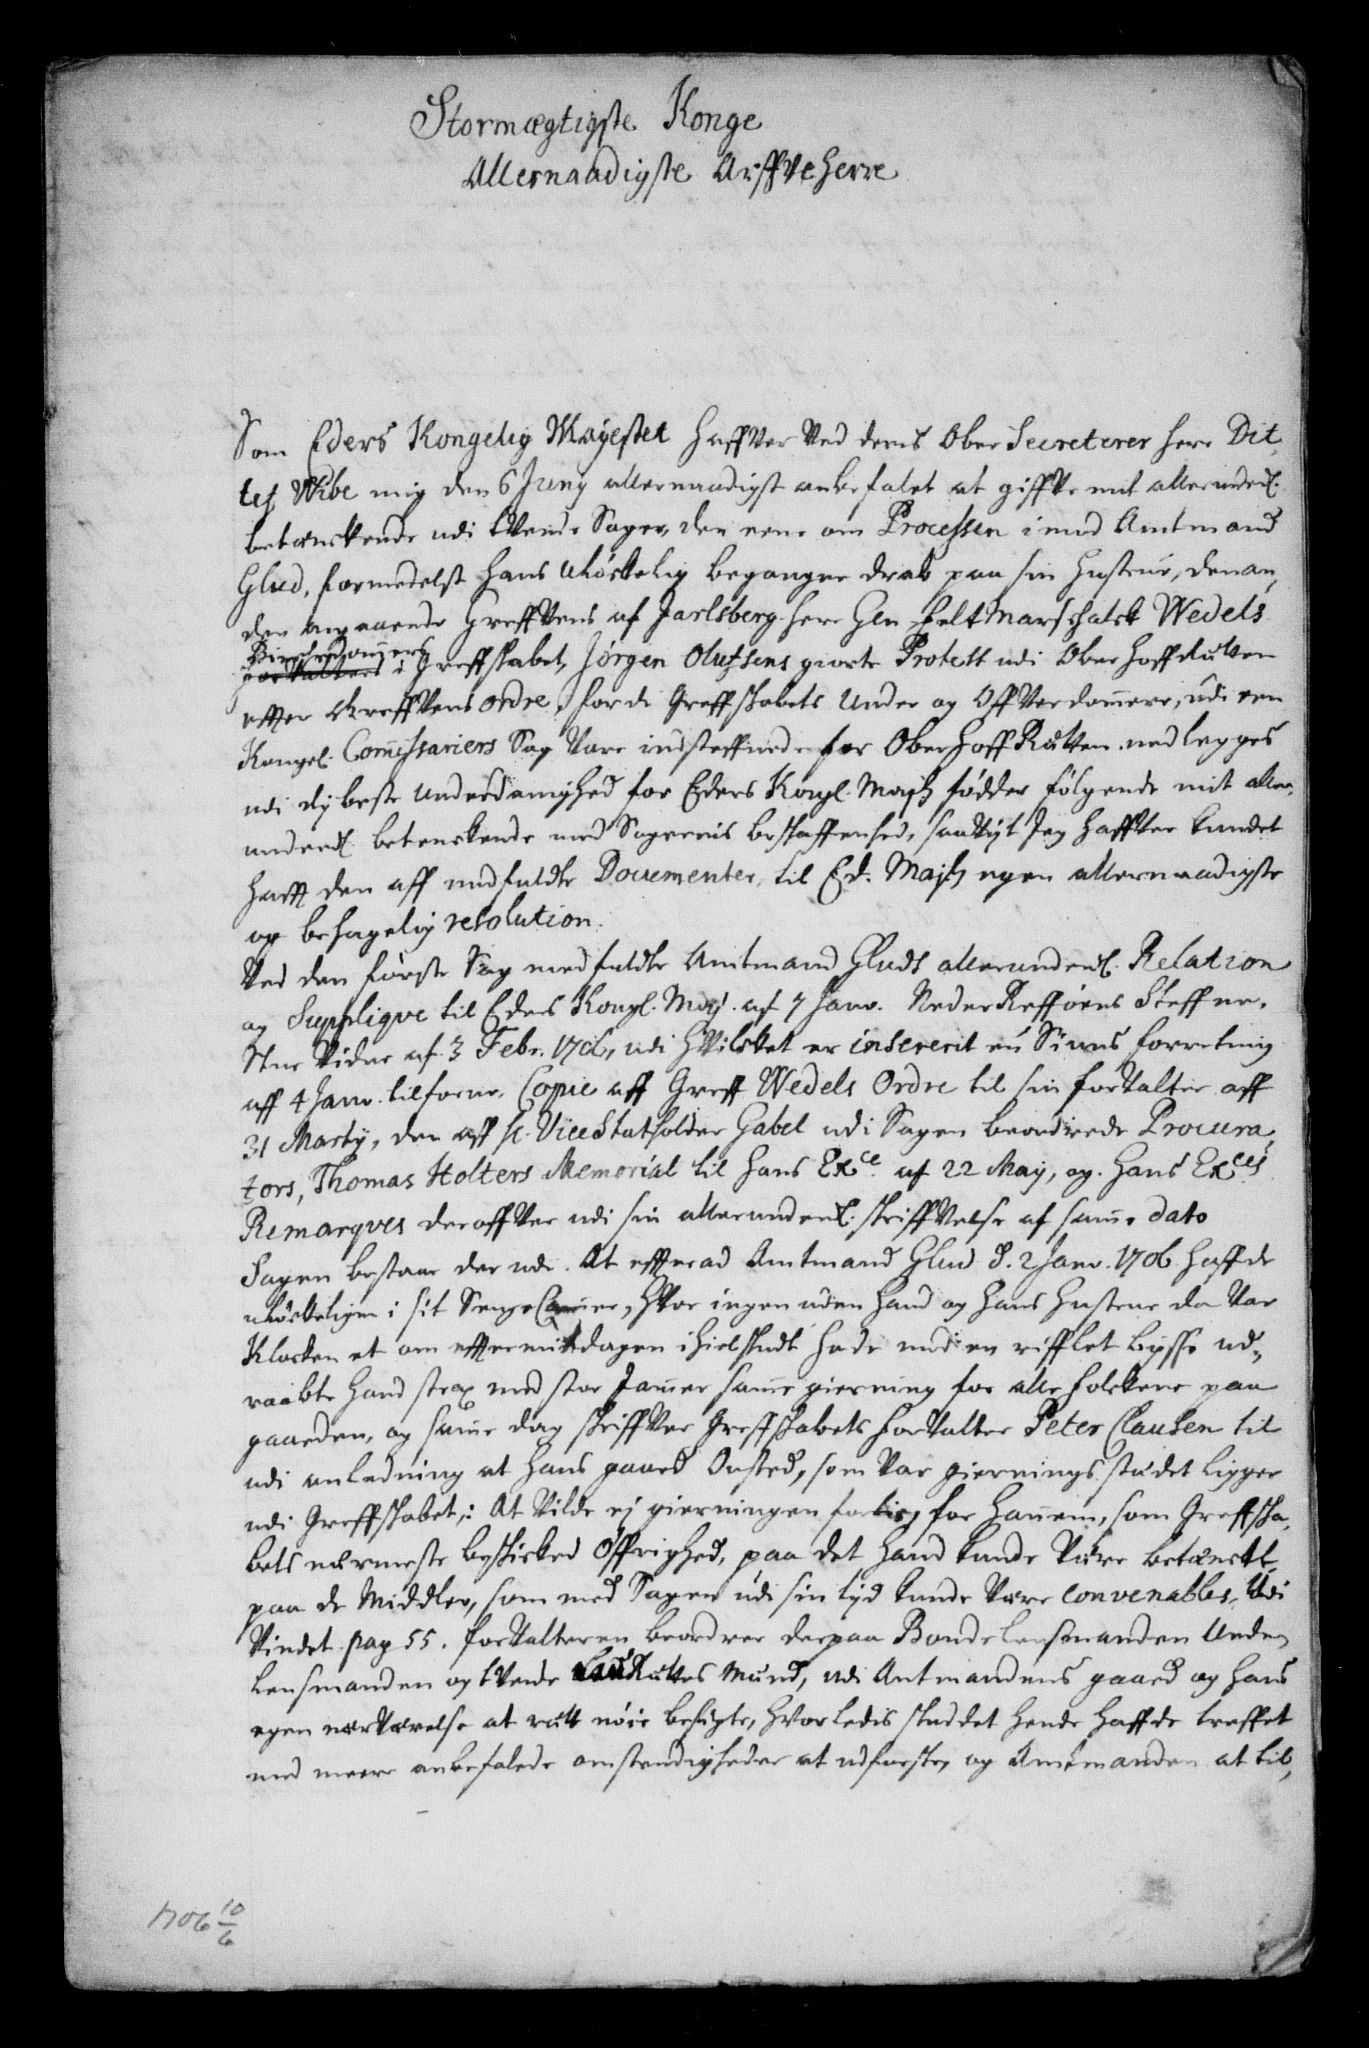 Stormægtigste Konge
Allernaadigste Arffve Herre
Som Eders Kongelig Mayestet haffver ved deris Ober Secreterer herr Dit,
lef Wibe mig den 6 Juny allernaadigst anbefalet at giffve mit allerunderd.
betænckende udi tvende Sager, den eene om Processen imod Amtmand
Glud, formedelst hans uløckelig begangne drab paa sin hustrue, den an,
den angaaende Greffvens af Jarlsberg herr Gen Felt Marschalck Wedels
Birchedommers
forvalters i Greffskabet, Jørgen Olufsens giorte Protest udi Ober Hoff Retten
effter Greffvens ordre, fordi Greffskabets Under og Offverdommere, udi een
Kongel. Commissariers Sag vare indsteffnede for OberHoff Retten nedlegges
udi dybeste underdanighed for Eders Kongl. Majts fødder følgende mit aller,
underd. betenckende med Sagernis beskaffenhed, saavit Jeg haffver kundet
hafft den aff medfuldte Documenter, til Ed. Majts egen allernaadigste
og behagelig resolution.
Ved den første Sag medfuldte Amtmand Gluds allerunderd. Relation
og Suppliqve til Eders Kongl. Maj. af 7 Janv. Neder Retttens Steffne,
Stue vidne af 3 Febr. 1706, udi hvilcket er insererit en Siuns forretning
aff 4 Janv. tilforne, Copie aff Greff Wedels Ordre til sin forvalter aff
31 Marty, den aff hr. Vice Statholder Gabel udi Sagen beordrede Procura,
tors, Thomas Holters Memorial til hans Exce. af 22 May, og hans Exces
Remarqves der offver udi sin allerunderd. skriffvelse af samme dato
Sagen bestaar der udi. At effterad Amtmand Glud d. 2 Janv. 1706 haffde
uløckeligen i sit Senge Camer, hvor ingen uden hand og hans hustrue da var
Klocken et om efftermiddagen ihielskudt hende med en rifflet bysse ud,
raabte hand strax med stor Jammer samme gierning for alle folckene paa
gaarden, og samme dag skriffver Greffskabets forvalter Peter Clausen til
udi anledning at hans gaard Onsted, som var giernings stædet ligger
udi Greffskabet,: At vilde ej gierningen forbierg for hannem, som Greffska,
bets nærmeste beskicked Øffrighed, paa det hand kunde være betænckt
paa de Middler, som med Sagen udi sin tid kunde være convenables, Udi
vindet pag 55. forvalteren beordrer derpaa Bonde Lensmanden Unden
Lensmanden og tvende LaugRettes Mænd, udi Amtmandens gaard og hans
egen nærværelse at rett nøie besigte, hvorledis skuddet hende haffde treffet
med meere anbefalede omstendigheder at udforske, og Amtmanden at til,
1706 10/6